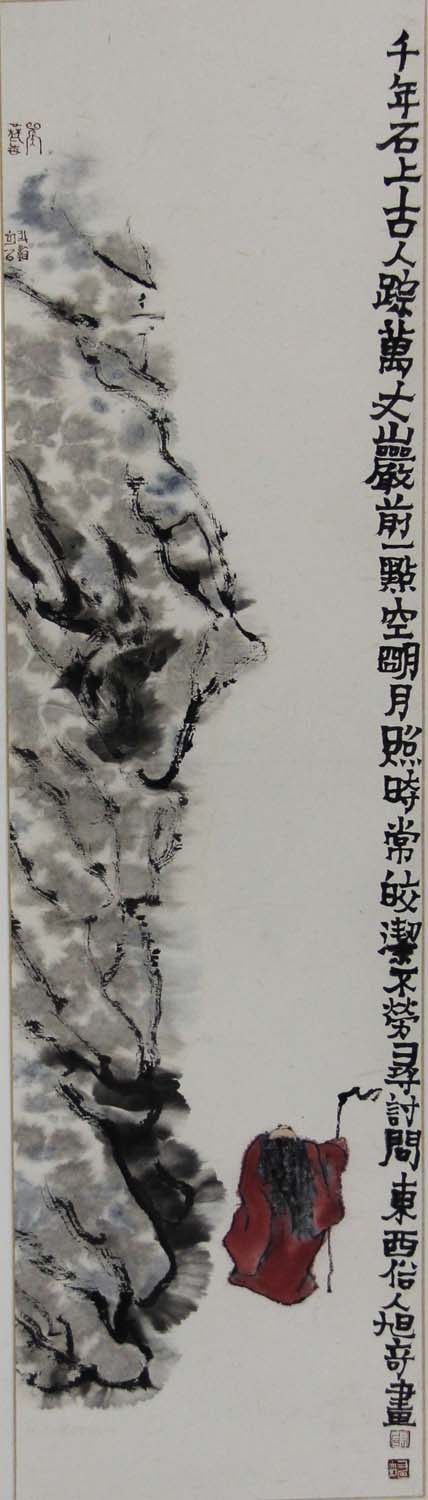 千年石上古人踪萬丈巖前一點空明月照時常皎潔不勞尋討問東西俗人旭奇畫